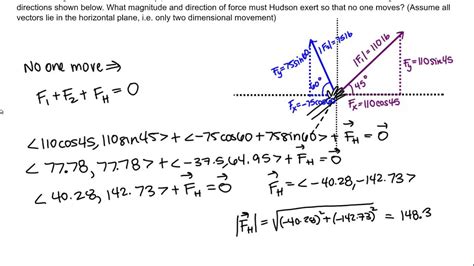 directions shown below. What magnitude and direction of force must Hudson exert so that no one moves? (Assume all
vectors lie in the horizontal plane, i.e. only two dimensional movement)
No one move ⇒
F₁+F₂+F_H=0
F_y=75sin60
|F₂|=75lb
60°
F_x=-75cos60
|F₁|=110lb
F_y=110sin45
45°
F_x=110cos45
<110cos45, 110sin45> + <-75cos60+75sin60> + F⃗_H = 0⃗
<77.78, 77.78> + <-37.5, 64.95> + F⃗_H = 0⃗
<40.28, 142.73> + F⃗_H = 0⃗
F⃗_H = <-40.28, -142.73>
|F⃗_H| = √(-40.28)²+(-142.73)² = 148.3